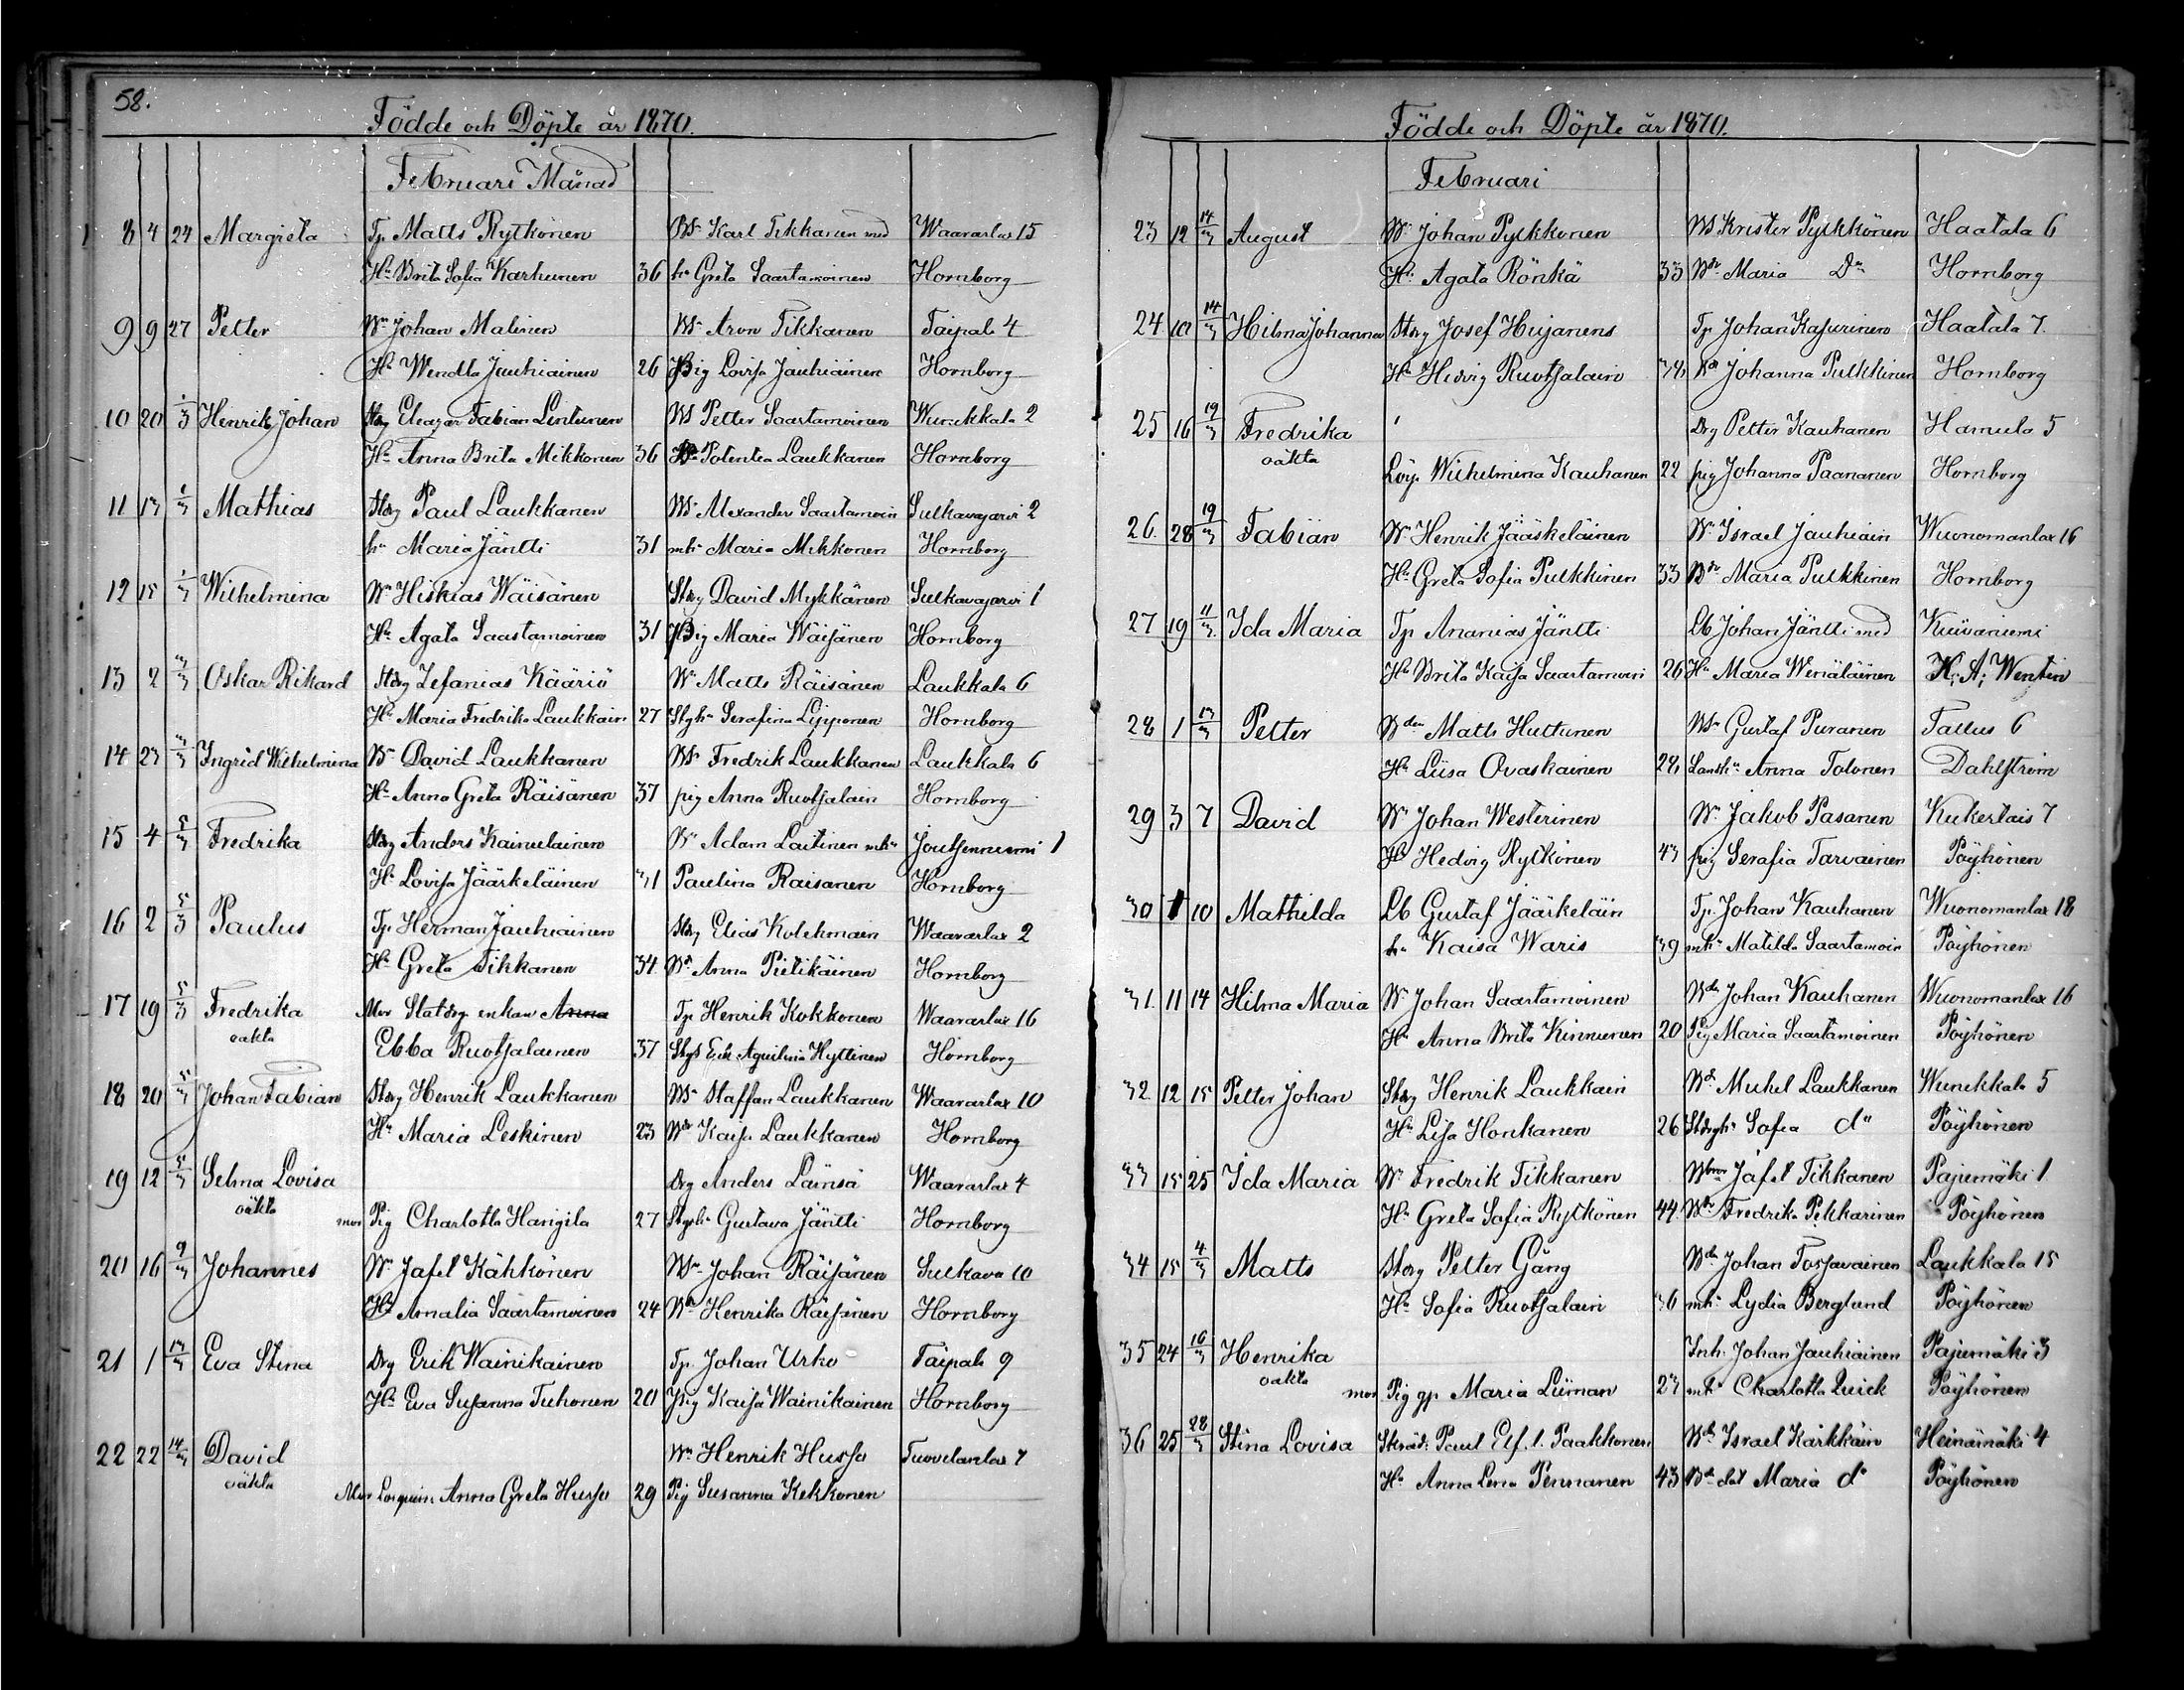 58.
Födde och Döpte år 1870.
Februari Månad
8 4 24 Margreta Tp. Matts Rytkönen Bs. Karl Tikkanen med Waaraslax 15
Hu Brita Sofia Karhunen 36 hu Greta Saastamoinen Hornborg
9 9 27 Petter Bn Johan Malinen Bs. Aron Tikkanen Taipale 4
Hu Wendla Jauhiainen 26 Pig Lovisa Jauhiainen Hornborg
10 20 1/3 Henrik Johan Stdrg Eleazar Fabian Lintunen Bs Petter Saastamoinen Wunukkala 2
Hu Anna Brita Mikkonen 36 Potentia Laukkanen Hornborg
11 13 1/3 Mathias Stdrg Paul Laukkanen Bs. Alexander Saastamoin Sulkavajärvi 2
hu Maria Jäntti 31 mhu Maria Mikkonen Hornborg
12 15 1/3 Wilhelmina Bn Hiskias Wäisänen Stdrg David Mykkänen Sulkavajärvi 1
Hu Agata Saastamoinen 31 Pig Maria Wäisänen Hornborg
13 2 3/3 Oskar Rikard Stdrg Zefanias Kääriö Bn Matts Räisänen Laukkala 6
Hu Maria Fredrika Laukkain 27 Styhu Serafina Lipponen Hornborg
14 23 3/3 Ingrid Wilhelmina Bn David Laukkanen Bs. Fredrik Laukkanen Laukkala 6
Hu Anna Greta Räisänen 37 pig Anna Ruotsalain Hornborg
15 4 5/3 Fredrika Stdrg Anders Kainulainen Bn Adam Laitinen mhu Joutsenniemi 1
Hu Lovisa Jääskeläinen 31 Paulina Raisanen Hornborg
16 2 5/3 Paulus Tp. Herman Jauhiainen Stdrg Elias Kolehmain Waaraslax 2
Hu Greta Tikkanen 34 Anna Pietikäinen Hornborg
17 19 5/3 Fredrika Mor Statdrg enkan Anna Tp. Henrik Kokkonen Waaraslax 16
oäkta Ebba Ruotsalainen 37 Aquilina Hyttinen Hornborg
18 20 5/3 Johan Fabian Stdrg Henrik Laukkanen Bs. Staffan Laukkanen Waaraslax 10
Hu Maria Leskinen 23 Kaisa Laukkanen Hornborg
19 12 5/3 Selma Lovisa Drg Anders Länsä Waaraslax 4
oäkta mor Pig Charlotta Hangila 27 Gustava Jäntti Hornborg
20 16 9/3 Johannes Bn Jafet Kähkönen Bs. Johan Räisänen Sulkava 10
Hu Amalia Saastamoinen 24 Henrika Räisänen Hornborg
21 1 13/3 Eva Stina Drg Erik Wainikainen Tp. Johan Urko Taipale 9
Hu Eva Susanna Tuhonen 20 Pig Kaisa Wainikainen Hornborg
22 22 14/3 David Bn Henrik Husso Tuovelanlax 7
oäkta Mor Anna Greta Husso 29 Pig Susanna Kekkonen
Födde och Döpte år 1870.
Februari
23 12 14/3 August Bn Johan Pylkkonen Bs. Krister Pylkkönen Haatala 6
Hu Agata Rönkä 33 Maria Do Hornborg
24 10 14/3 Hilma Johanna Stdrg Josef Hujanens Tp. Johan Kasurinen Haatala 7
Hu Hedvig Ruotsalain Johanna Pulkkinen Hornborg
25 16 19/3 Fredrika Drg Petter Kauhanen Hamula 5
oäkta Wilhelmina Kauhanen 22 pig Johanna Paananen Hornborg
26. 28 19/3 Fabian Bn Henrik Jääskeläinen Bn Israel Jauhiain Wuonomanlax 16
Hu Greta Sofia Pulkkinen 33 Maria Pulkkinen Hornborg
27 19 11/3 Ida Maria Tp Ananias Jäntti Lb Johan Jäntti med Kiuvaniemi
Hu Brita Kaisa Saastamoin 26 Hu Maria Wenäläinen K. A. Wentin
28 1 13/3 Petter Matts Huttunen Bs. Gustaf Puranen Tallus 6
Hu Liisa Ovaskainen 28 Anna Tolonen Dahlström
29 3 7 David Bn Johan Westerinen Bn Jakob Pasanen Kukertais 7
Hu Hedvig Rytkönen 43 pig Serafia Tarvainen Pöyhönen
30 1 10 Mathilda Lb Gustaf Jääskeläin Tp. Johan Kauhanen Wuonomanlax 18
hu Kaisa Waris 39 mhu Matilda Saastamoin Pöyhönen
31. 11 14 Hilma Maria Bn Johan Saastamoinen Johan Kauhanen Wuonomanlax 16
Hu Anna Brita Kinnunen 20 Pig Maria Saastamoinen Pöyhönen
32 12 15 Petter Johan Stdrg Henrik Laukkain Mickel Laukkanen Wunukkala 5
Hu Lisa Honkanen 26 Sofia do Pöyhönen
33 15 25 Ida Maria Bn Fredrik Tikkanen Jafet Tikkanen Pajumäki 1
Hu Greta Sofia Rytkönen 44 Fredrika Pekkarinen Pöyhönen
34 15 4/3 Matts Stdrg Petter Gång Johan Tossavainen Laukkala 15
Hu Sofia Ruotsalain 36 mhu Lydia Berglund Pöyhönen
35 24 16/3 Henrika Inh. Johan Jauhiainen Pajumäki 3
oäkta mor Pig gp Maria Liiman 23 mhu Charlotta Quick Pöyhönen
36 25 28/3 Stina Lovisa Paul Paakkonen Israel Kärkkäin Heinämäki 4
Hu Anna Lena Pennanen 43 Maria do Pöyhönen